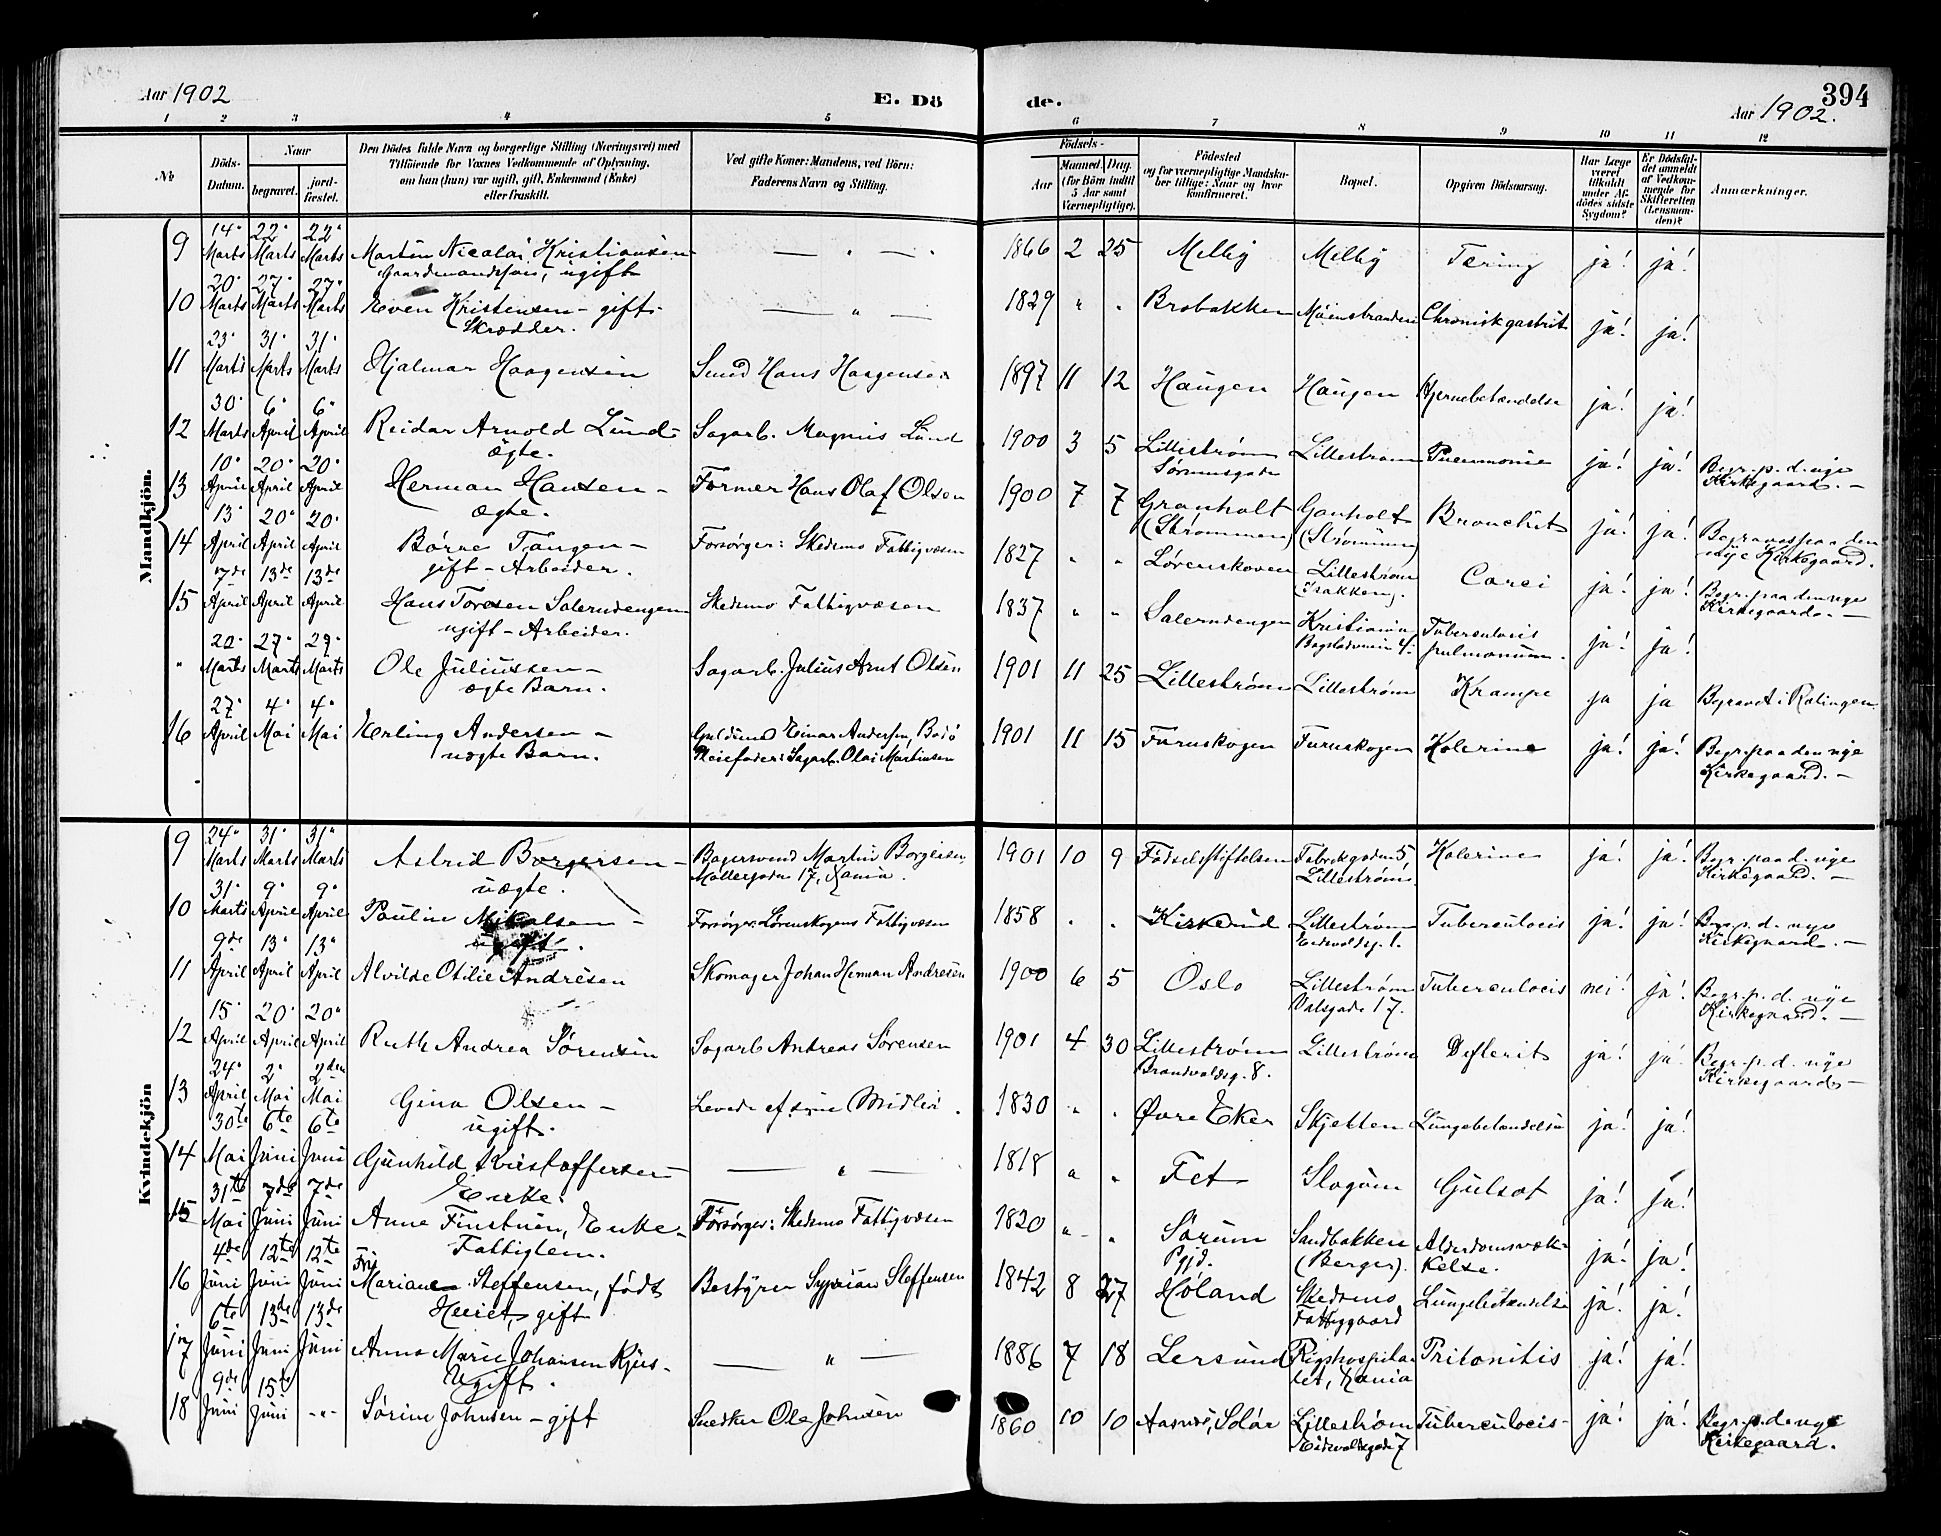 Aar 1902
E. Dö
de.
394
Aar 1902.
1 2 3 4 5 6 7 8 9 10 11 12
№
Döds-Datum.
Naar
begravet.
jord-fæstet.
Den Dödes fulde Navn og borgerlige Stilling (Næringsvei) med
Tilföiende for Voxnes Vedkommende af Oplysning,
om han (hun) var ugift, gift, Enkemand (Enke)
eller fraskilt.
Ved gifte Koner: Mandens, ved Börn:
Faderens Navn og Stilling.
Födsels-
Aar
Maaned.
Dag.
(for Börn indtil
5 Aar samt
Værnepligtige).
Födested
og for værnepligtige Mandsku-
ber tillige: Naar og hvor
konfirmeret.
Bopæl.
Opgiven Dödsaarsag.
Har Læge
været
tilkaldt
under Af-
dödes sidste
Sygdom?
Er Dödsfal-
det anmeldt
af Vedkom-
mende for
Skifteretten
(Lensman-
den)?
Anmærkninger.
Mandkjön.
9 14. Marts 22. Marts 22. Marts Martin Nicolai Kristiansen 1866 2 25 Melby Melby Tæring ja! ja!
Gaardmandssøn, ugift
10 20. Marts 27. Marts 27. Marts Even Kristensen - gift. 1829 " " Brobakken Chronisk gastrit ja! ja!
Skrædder.
11 23. Marts 31. Marts 31. Marts Hjalmar Haagensen Smed Hans Haagensen 1897 11 12 Haugen Haugen Hjernebetændelse ja! ja!
12 30. Marts 6. April 6. April Reidar Arnold Lund Sagarb. Magnus Lund 1900 3 5 Lillestrøm Lillestrøm Pneumonie ja! ja! Begr. p. d. nye
ægte. Kirkegaard. -
13 10. April 20. April 20. April Herman Hansen - Former Hans Olaf Olsen 1900 7 7 Granholt Ganholt Bronchit ja! ja! Begraves paa den
ægte. (Strømmen) (Strømmen) nye Kirkegaard.
14 13. April 20. April 20. April Børre Tangen - Forsørger: Skedsmo Fattigvæsen 1827 " " Lørenskoven Lillestrøm ja! ja! Begr. paa den nye
gift - Arbeider. Kirkegaard. -
15 7de April 13de April 13de April Hans Toresen Salerudengen Skedsmo Fattigvæsen 1837 " " Salerudengen Kristiania Tuberculocis ja! ja!
ugift - Arbeider. pulmonum.
" 20. Marts 27. Marts 29. Marts Ole Juliussen - Sagarb. Julius Arnt Olsen 1901 11 25 Lillestrøm Lillestrøm Krampe ja ja Begravet i Rælingen
ægte Barn.
16 27. April 4. Mai 4. Mai Herling Andersen - Guldsmed Einar Andersen, Bodø 1901 11 15 Furuskogen Furuskogen Kolerine ja! ja! Begr. paa den nye
uægte Barn. Pleiefader: Sagarb. Olai Martinsen Kirkegaard. -
Kvindekjön
9 24. Marts 31. Marts 31. Marts Astrid Borgersen - Bagersvend Martin Borgersen, 1901 10 9 Fødselsstiftelsen Fabrikgaden 5, Kolerine ja! ja! Begr. paa d. nye
uægte. Møllergaden 17, Xania. Lillestrøm. Kirkegaard. -
10 31. Marts 9. April 9. April Paulin Mikalsen - Forsørger: Lørenskogens Fattigvæsen 1858 . . Kirkerud Lillestrøm Tuberculocis ja! ja! Begr. p. d. nye
ugift. Eidsvoldsg. 1. Kirkegaard. -
11 9de April 13. April 13. April Alvilde Otilie Andresen Skomager Johan Herman Andresen 1900 6 5 Oslo Lillestrøm Tuberculocis nei! ja! Begr. p. d. nye
Valsgade 17. Kirkegaard. -
12 15. April 20. April 20. April Ruth Andrea Sørensen Sagarb. Andreas Sørensen 1901 4 30 Lillestrøm Lillestrøm Defterit ja! ja! Begr. p. d. nye
Brandvaldsg. 8. Kirkegaard -
13 24. April 2. Mai 2den Mai Gina Olsen - Levede af sine Midler. 1830 " . Øvre Eker Skjetten Lungebetændelse ja! ja!
ugift.
14 30te Mai 6te Juni 6te Juni Gunhild Kristoffersen - 1818 " " Fet Slogum Gulsot ja! ja!
Enke.
15 31te Mai 7de Juni 7de Juni Anne Finstuen, Enke. Forsørger: Skedsmo Fattigvæsen 1820 " " Sørum Sandbakken Alderdomssvæk-
Fattiglem. Pgjd. (Berger). kelse. ja! ja!
16 4de Juni 12te Juni 12te Juni Fru Mariane Steffensen, født Bestyrer Syprian Steffensen 1842 8 27 Høland Skedsmo Lungebetændelse ja! ja!
gift Fattiggaard
17 6te Juni 13de Juni 13de Juni Anna Marie Johansen Kjus - 1886 7 18 Lersund Rigshospita- Pritonitis ja! ja!
Ugift. let, Xania
18 9de Juni 15de Juni -"- Sørine Johnsen - gift Snedker Ole Johnsen 1860 10 10 Aasnes, Solør Lillestrøm Tuberculocis - ja! ja! Begr. p. de nye
Eidsvoldsgade 7 Kirkegaard.